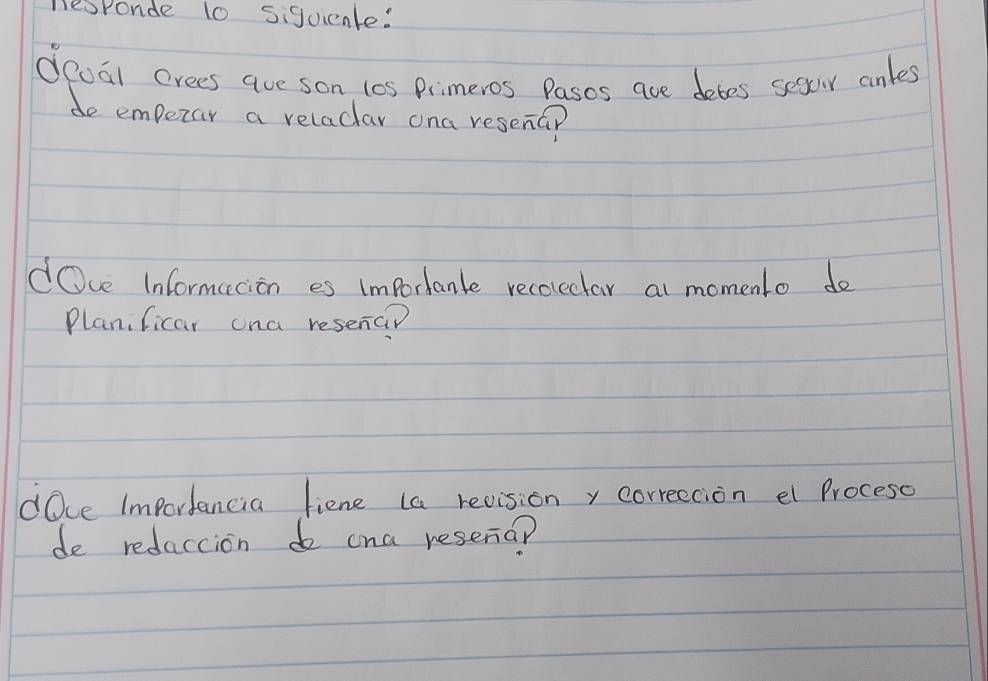 Responde lo siguiente:
¿Cuál crees que son los primeros Pasos que debes seguir antes
de empezar a relactar una reseña?
¿Qué Información es importante recolectar al momento de
Planificar una reseña?
¿Que importancia tiene la revisión y corrección el Proceso
de redacción de una reseña?